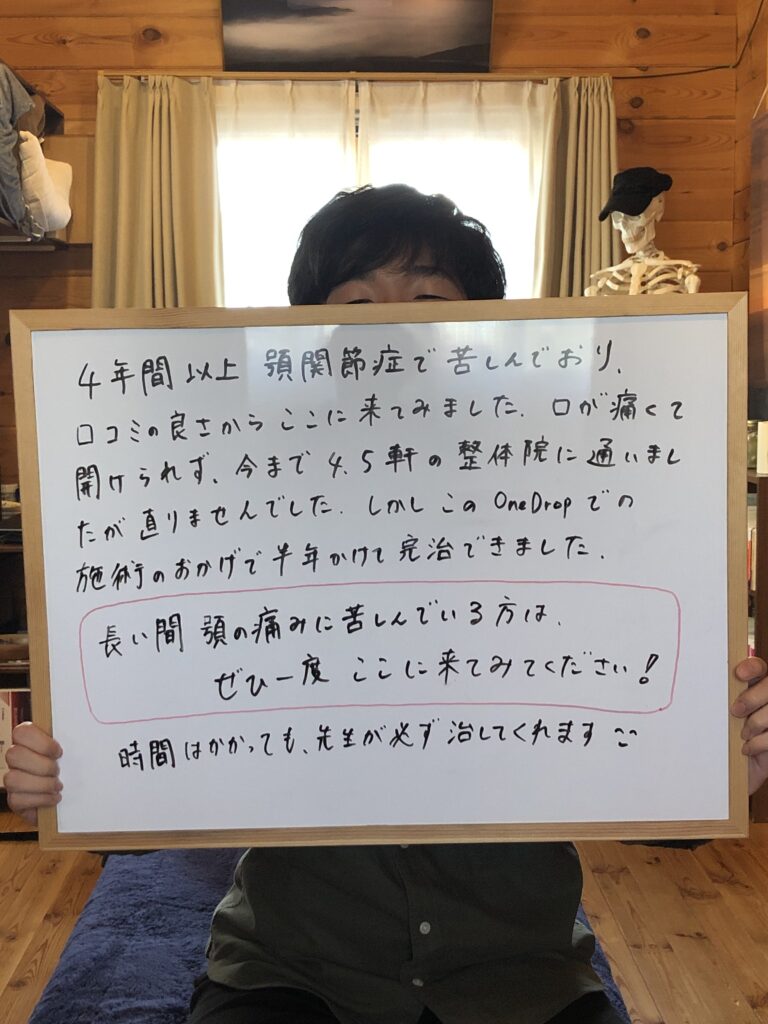 4年間以上 顎関節症で苦しんでおり、
口コミの良さからここに来てみました。口が痛くて
開けられず、今まで4、5軒の整体院に通いまし
たが直りませんでした。しかしこのOneDropでの
施術のおかげで半年かけて完治できました。
長い間 顎の痛みに苦しんでいる方は、
ぜひ一度 ここに来てみてください!
時間はかかっても、先生が必ず治してくれます